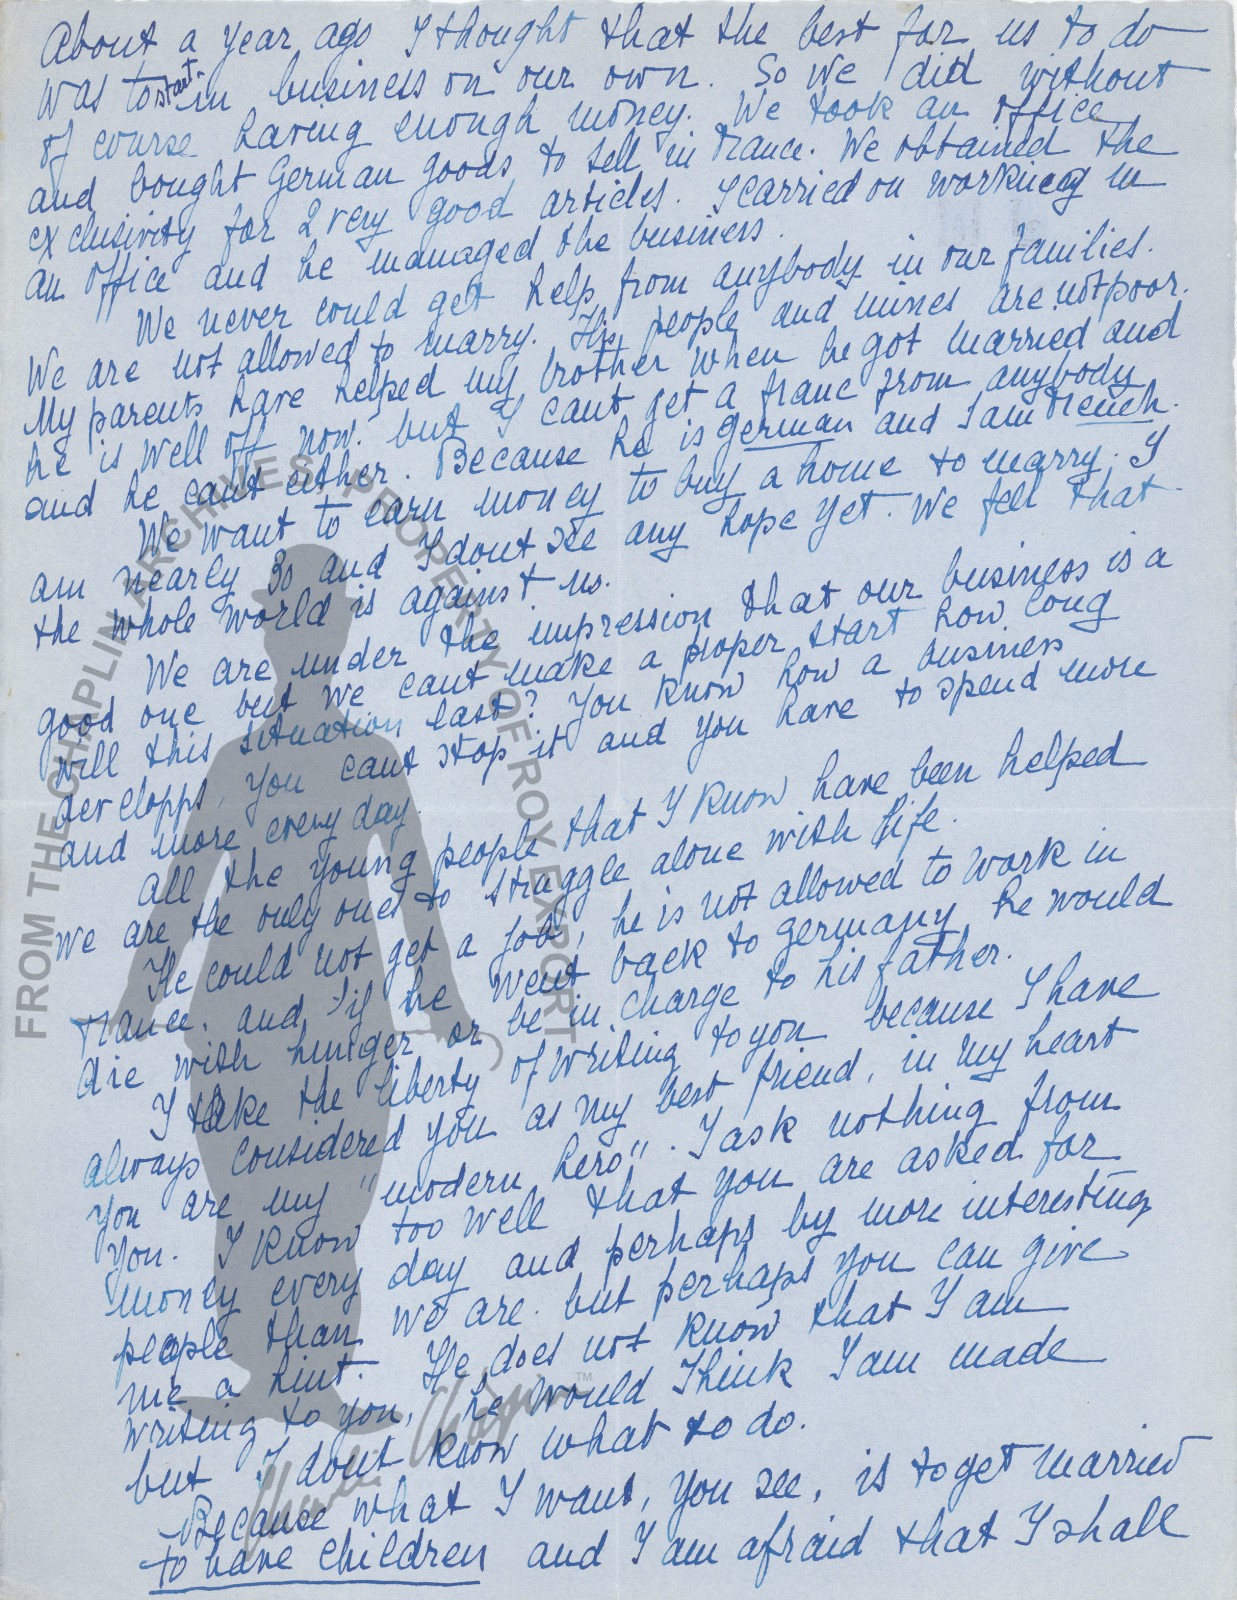 About a year ago I thought that the best for us to do
was to start in business on our own. So we did without
of course having enough money. We took an office
and bought German goods to sell in France. We obtained the
exclusivity for 2 very good articles. I carried on working in
an office and he managed the business.
We never could get help from anybody in our families.
We are not allowed to marry. His people and mines are not poor.
My parents have helped my brother when he got married and
he is well off now. but I cant get a franc from anybody
and he cant either. Because he is german and I am French.
We want to earn money to buy a home to marry. I
am nearly 30 and I dont see any hope yet. We feel that
the whole world is against us.
We are under the impression that our business is a
good one but we cant make a proper start how long
will this situation last? You know how a business
developps, you cant stop it and you have to spend more
and more every day.
All the young people that I know have been helped
We are the only ones to struggle alone with life.
He could not get a job, he is not allowed to work in
France. and if he went back to germany he would
die with hunger or be in charge to his father.
I take the liberty of writing to you because I have
always considered you as my best friend, in my heart
you are my "modern hero". I ask nothing from
you. I know too well that you are asked for
money every day and perhaps by more interesting
people than we are. but perhaps you can give
me a hint. He does not know that I am
writing to you, he would think I am made
but I dont know what to do.
Because what I want, you see, is to get married
to have children and I am afraid that I shall
FROM THE CHAPLIN ARCHIVES, PROPERTY OF ROY EXPORT
Charlie Chaplin ™